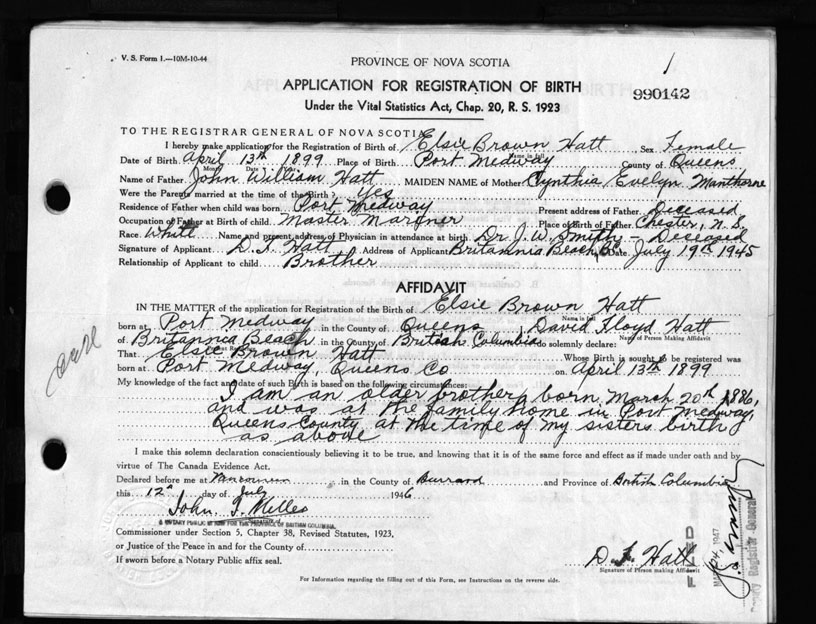 V. S. Form 1.—10M-10-44
1
PROVINCE OF NOVA SCOTIA
APPLICATION FOR REGISTRATION OF BIRTH
990142
Under the Vital Statistics Act, Chap. 20, R. S. 1923
TO THE REGISTRAR GENERAL OF NOVA SCOTIA
I hereby make application for the Registration of Birth of Elsie Brown Hatt Sex Female
Name in full
Date of Birth April 13th 1899 Place of Birth Port Medway County of Queens
Name of Father John William Hatt MAIDEN NAME of Mother Cynthia Evelyn Manthorne
Were the Parents married at the time of the Birth? Yes
Residence of Father when child was born Port Medway Present address of Father Deceased
Occupation of Father at Birth of child Master Mariner Place of Birth of Father Chester, N.S.
Race White Name and present address of Physician in attendance at birth Dr J. W. Smith, Deceased
Signature of Applicant Address of Applicant Britannia Beach Date July 19th 1945
Relationship of Applicant to child Brother
AFFIDAVIT
IN THE MATTER of the application for Registration of the Birth of Elsie Brown Hatt
Name in full
born at Port Medway in the County of Queens, David Floyd Hatt
Name of Person Making Affidavit
of Britannia Beach in the County of British Columbia do solemnly declare:
That Elsie Brown Hatt Whose Birth is sought to be registered was
born at Port Medway, Queens Co on April 13th 1899
My knowledge of the fact and date of such Birth is based on the following circumstances:
I am an older brother, born March 20th 1886,
and was at the family home in Port Medway,
Queens County at the time of my sisters birth
as above
I make this solemn declaration conscientiously believing it to be true, and knowing that it is of the same force and effect as if made under oath and by
virtue of The Canada Evidence Act.
Declared before me at Vancouver in the County of Burrard and Province of British Columbia
this 12th day of July 1946
A NOTARY PUBLIC IN AND FOR THE PROVINCE OF BRITISH COLUMBIA
Commissioner under Section 5, Chapter 38, Revised Statutes, 1923,
or Justice of the Peace in and for the County of
If sworn before a Notary Public affix seal.
Hatt
Signature of Person making Affidavit
For Information regarding the filling out of this Form, see Instructions on the reverse side.
FILED
1947
Deputy Registrar General